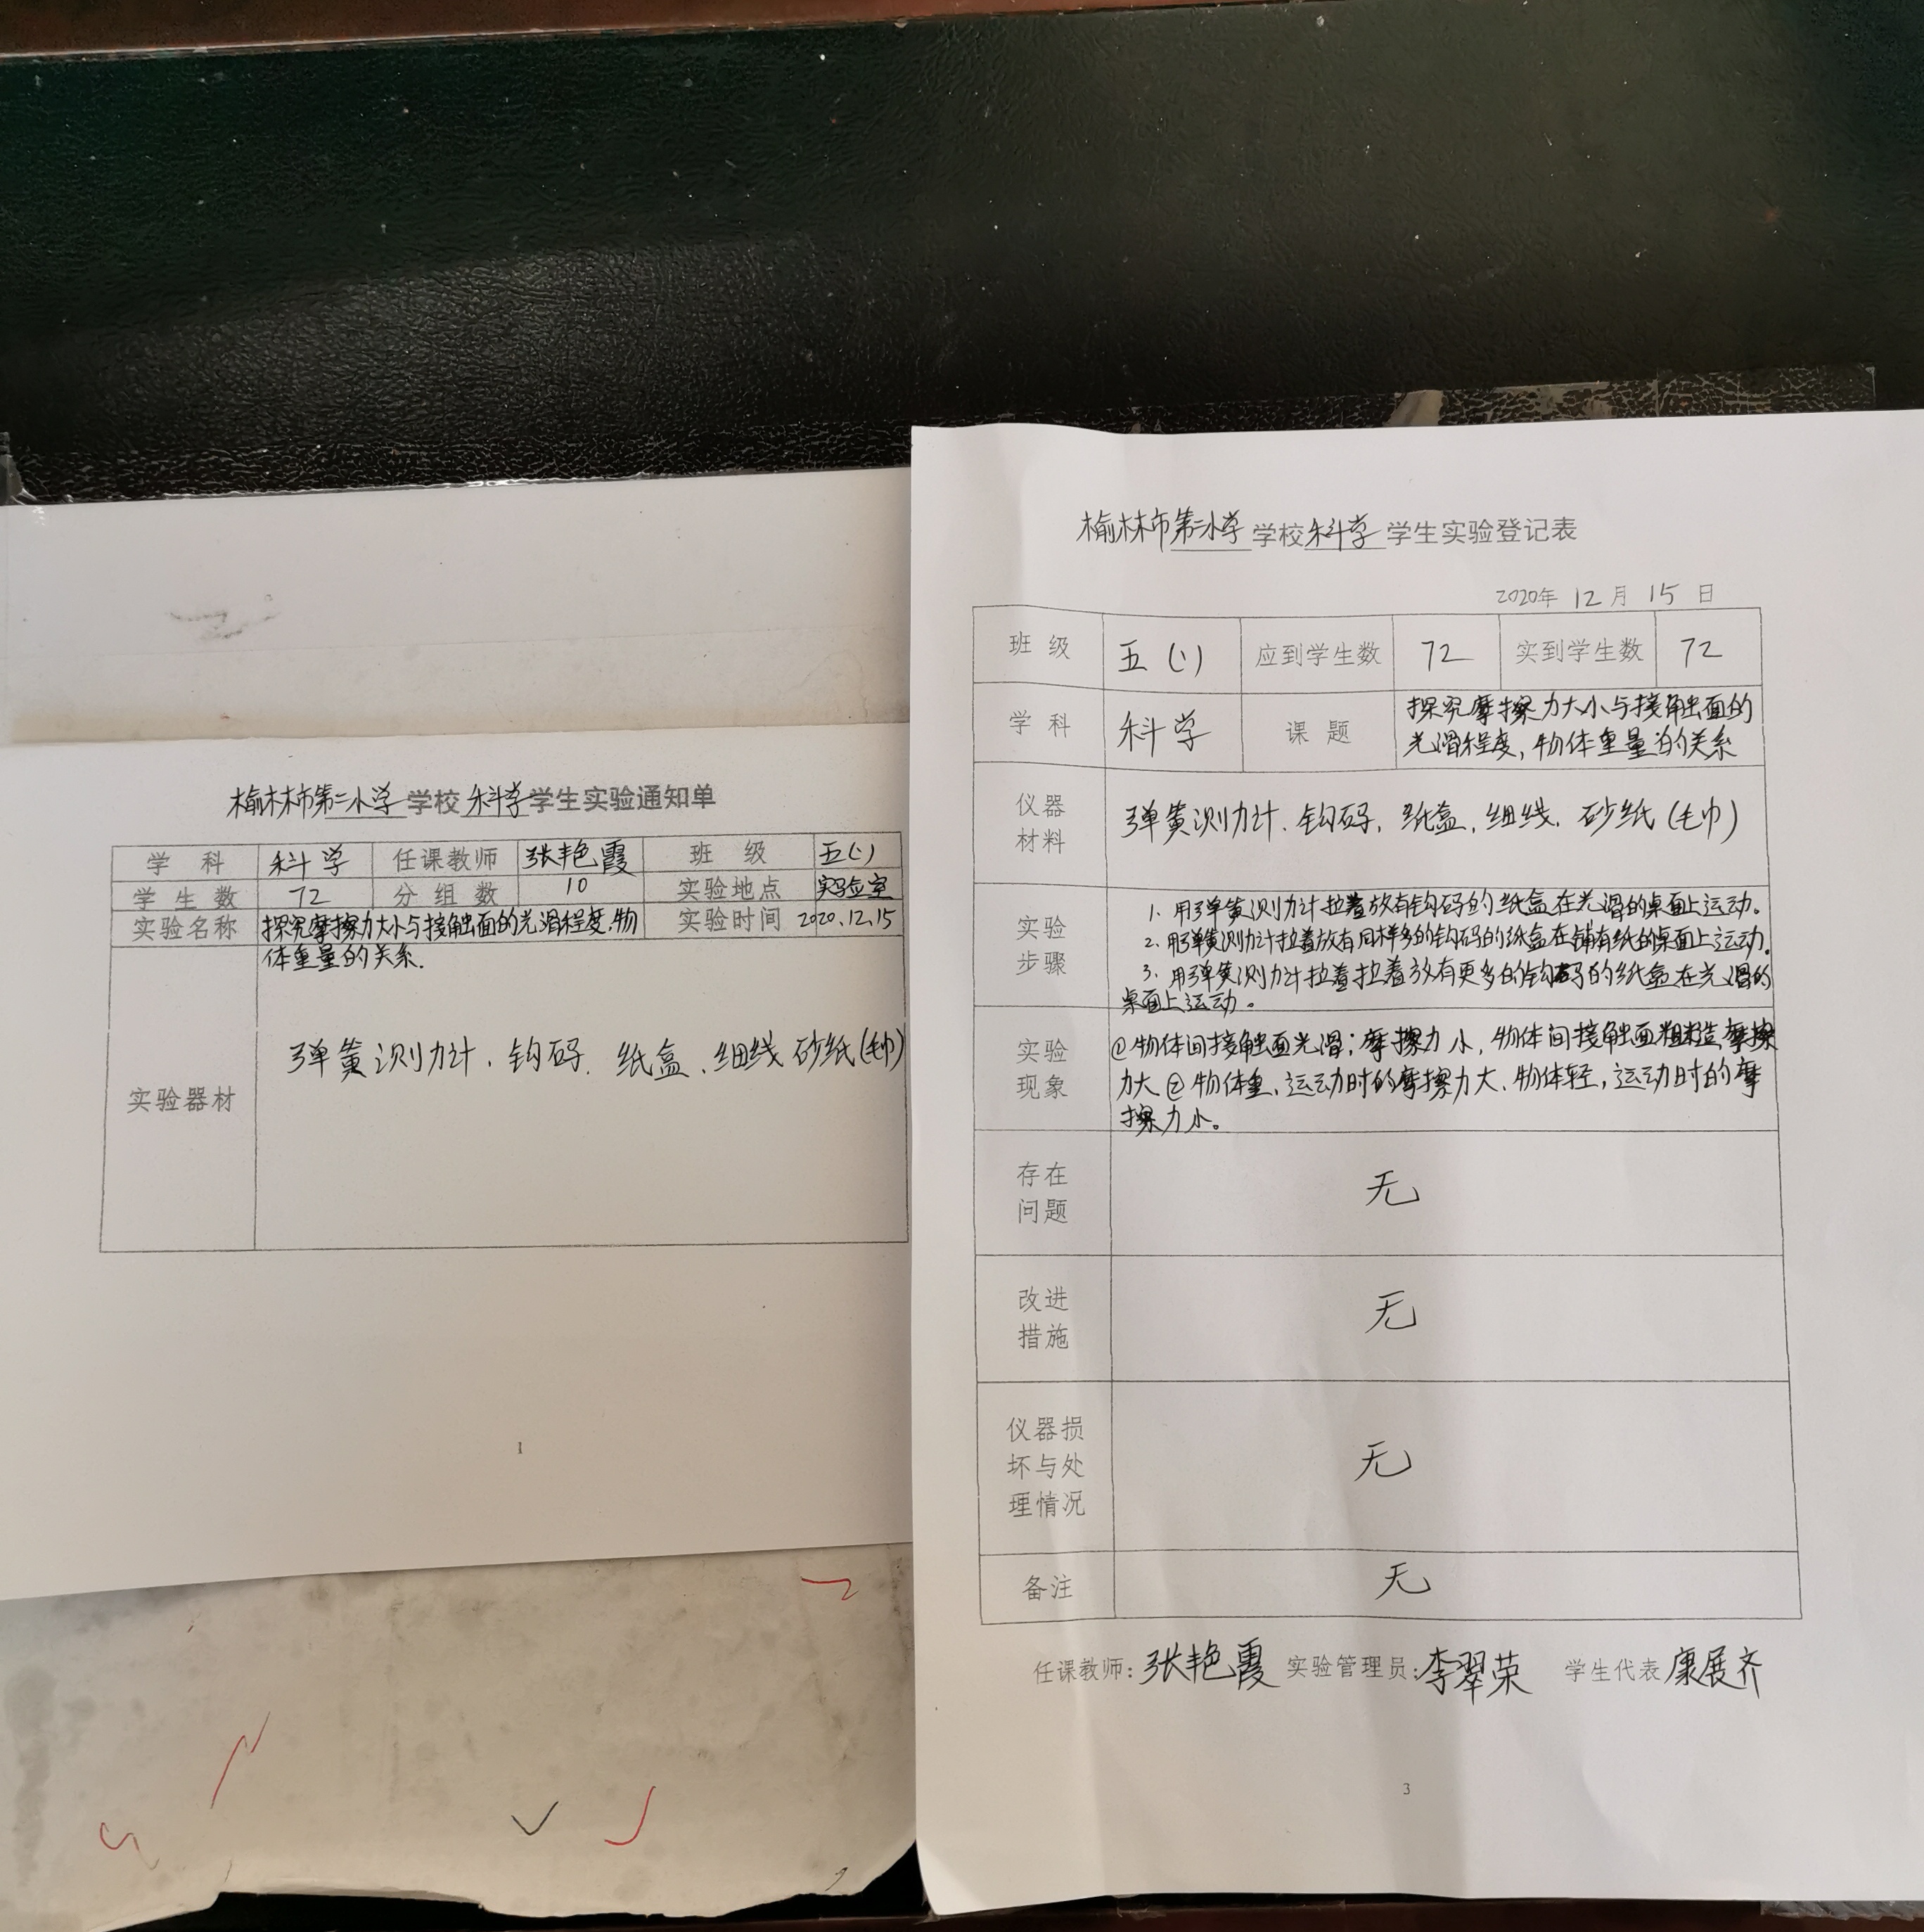 榆林市第二小学学校科学学生实验通知单
学科 科学 任课教师 张艳霞 班级 五(1)
学生数 72 分组数 10 实验地点 实验室
实验名称 探究摩擦力大小与接触面的光滑程度,物 实验时间 2020.12.15
体重量的关系.
实验器材 弹簧测力计、钩码、纸盒、细线 砂纸(毛巾)
1
榆林市第二小学学校科学学生实验登记表
2020年 12月 15日
班级 五(1) 应到学生数 72 实到学生数 72
学科 科学 课题 探究摩擦力大小与接触面的
光滑程度,物体重量的关系
仪器
材料
弹簧测力计、钩码、纸盒、细线、砂纸(毛巾)
实验
步骤
1. 用弹簧测力计拉着放有钩码的纸盒在光滑的桌面上运动。
2. 用弹簧测力计拉着放有同样多的钩码的纸盒在铺有纸的桌面上运动。
3. 用弹簧测力计拉着拉着放有更多的钩码的纸盒在光滑的
桌面上运动。
实验
现象
①物体间接触面光滑;摩擦力小,物体间接触面粗糙,摩擦
力大②物体重,运动时的摩擦力大、物体轻,运动时的摩
擦力小。
存在
问题
无
改进
措施
无
仪器损
坏与处
理情况
无
备注 无
任课教师:张艳霞 实验管理员:李翠荣 学生代表 康展齐
3